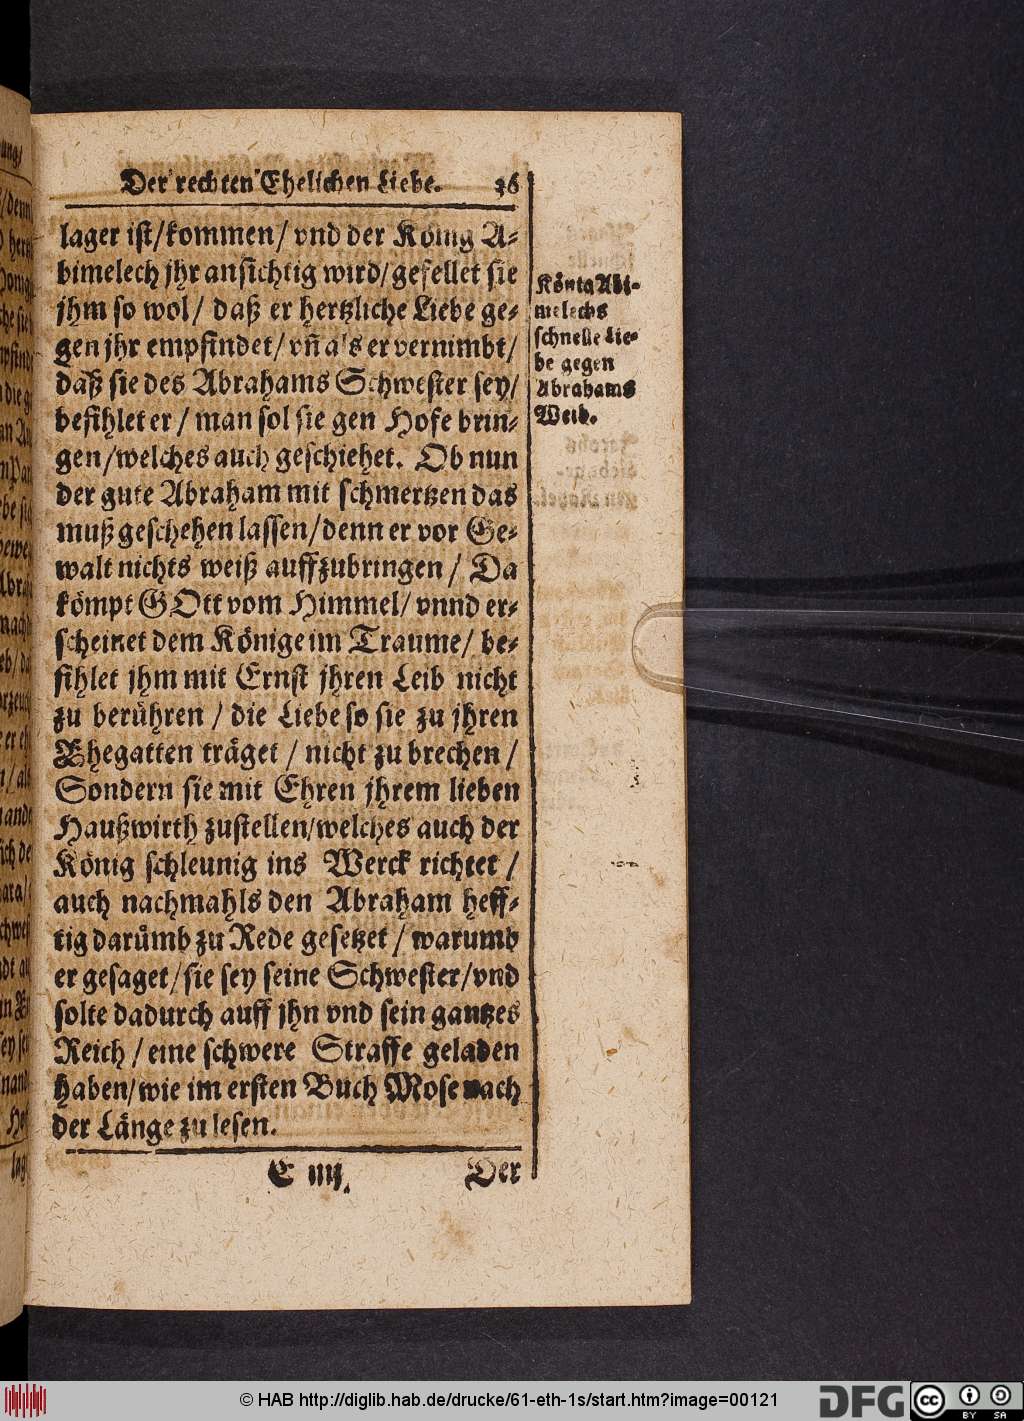 Der rechten Ehelichen Liebe. 36
lager ist/kommen/ vnd der König A-
bimelech jhr ansichtig wird/gefellet sie
jhm so wol/ daß er hertzliche Liebe ge-
gen jhr empfindet/ vñ als er vernimbt/
daß sie des Abrahams Schwester sey/
befihlet er / man sol sie gen Hofe brin-
gen/welches auch geschiehet. Ob nun
der gute Abraham mit schmertzen das
muß geschehen lassen/denn er vor Ge-
walt nichts weiß auffzubringen / Da
kömpt GOtt vom Himmel/ vnnd er-
scheinet dem Könige im Traume/ be-
fihlet jhm mit Ernst jhren Leib nicht
zu berühren / die Liebe so sie zu jhren
Ehegatten träget / nicht zu brechen /
Sondern sie mit Ehren jhrem lieben
Haußwirth zustellen/welches auch der
König schleunig ins Werck richtet /
auch nachmahls den Abraham heff-
tig darümb zu Rede gesetzet / warumb
er gesaget/sie sey seine Schwester/vnd
solte dadurch auff jhn vnd sein gantzes
Reich / eine schwere Straffe geladen
haben/wie im ersten Buch Mose nach
der Länge zu lesen.
E iiij.
Der
König Abi-
melechs
schnelle Lie-
be gegen
Abrahams
Weib.
© HAB http://diglib.hab.de/drucke/61-eth-1s/start.htm?image=00121
DFG
cc
BY SA